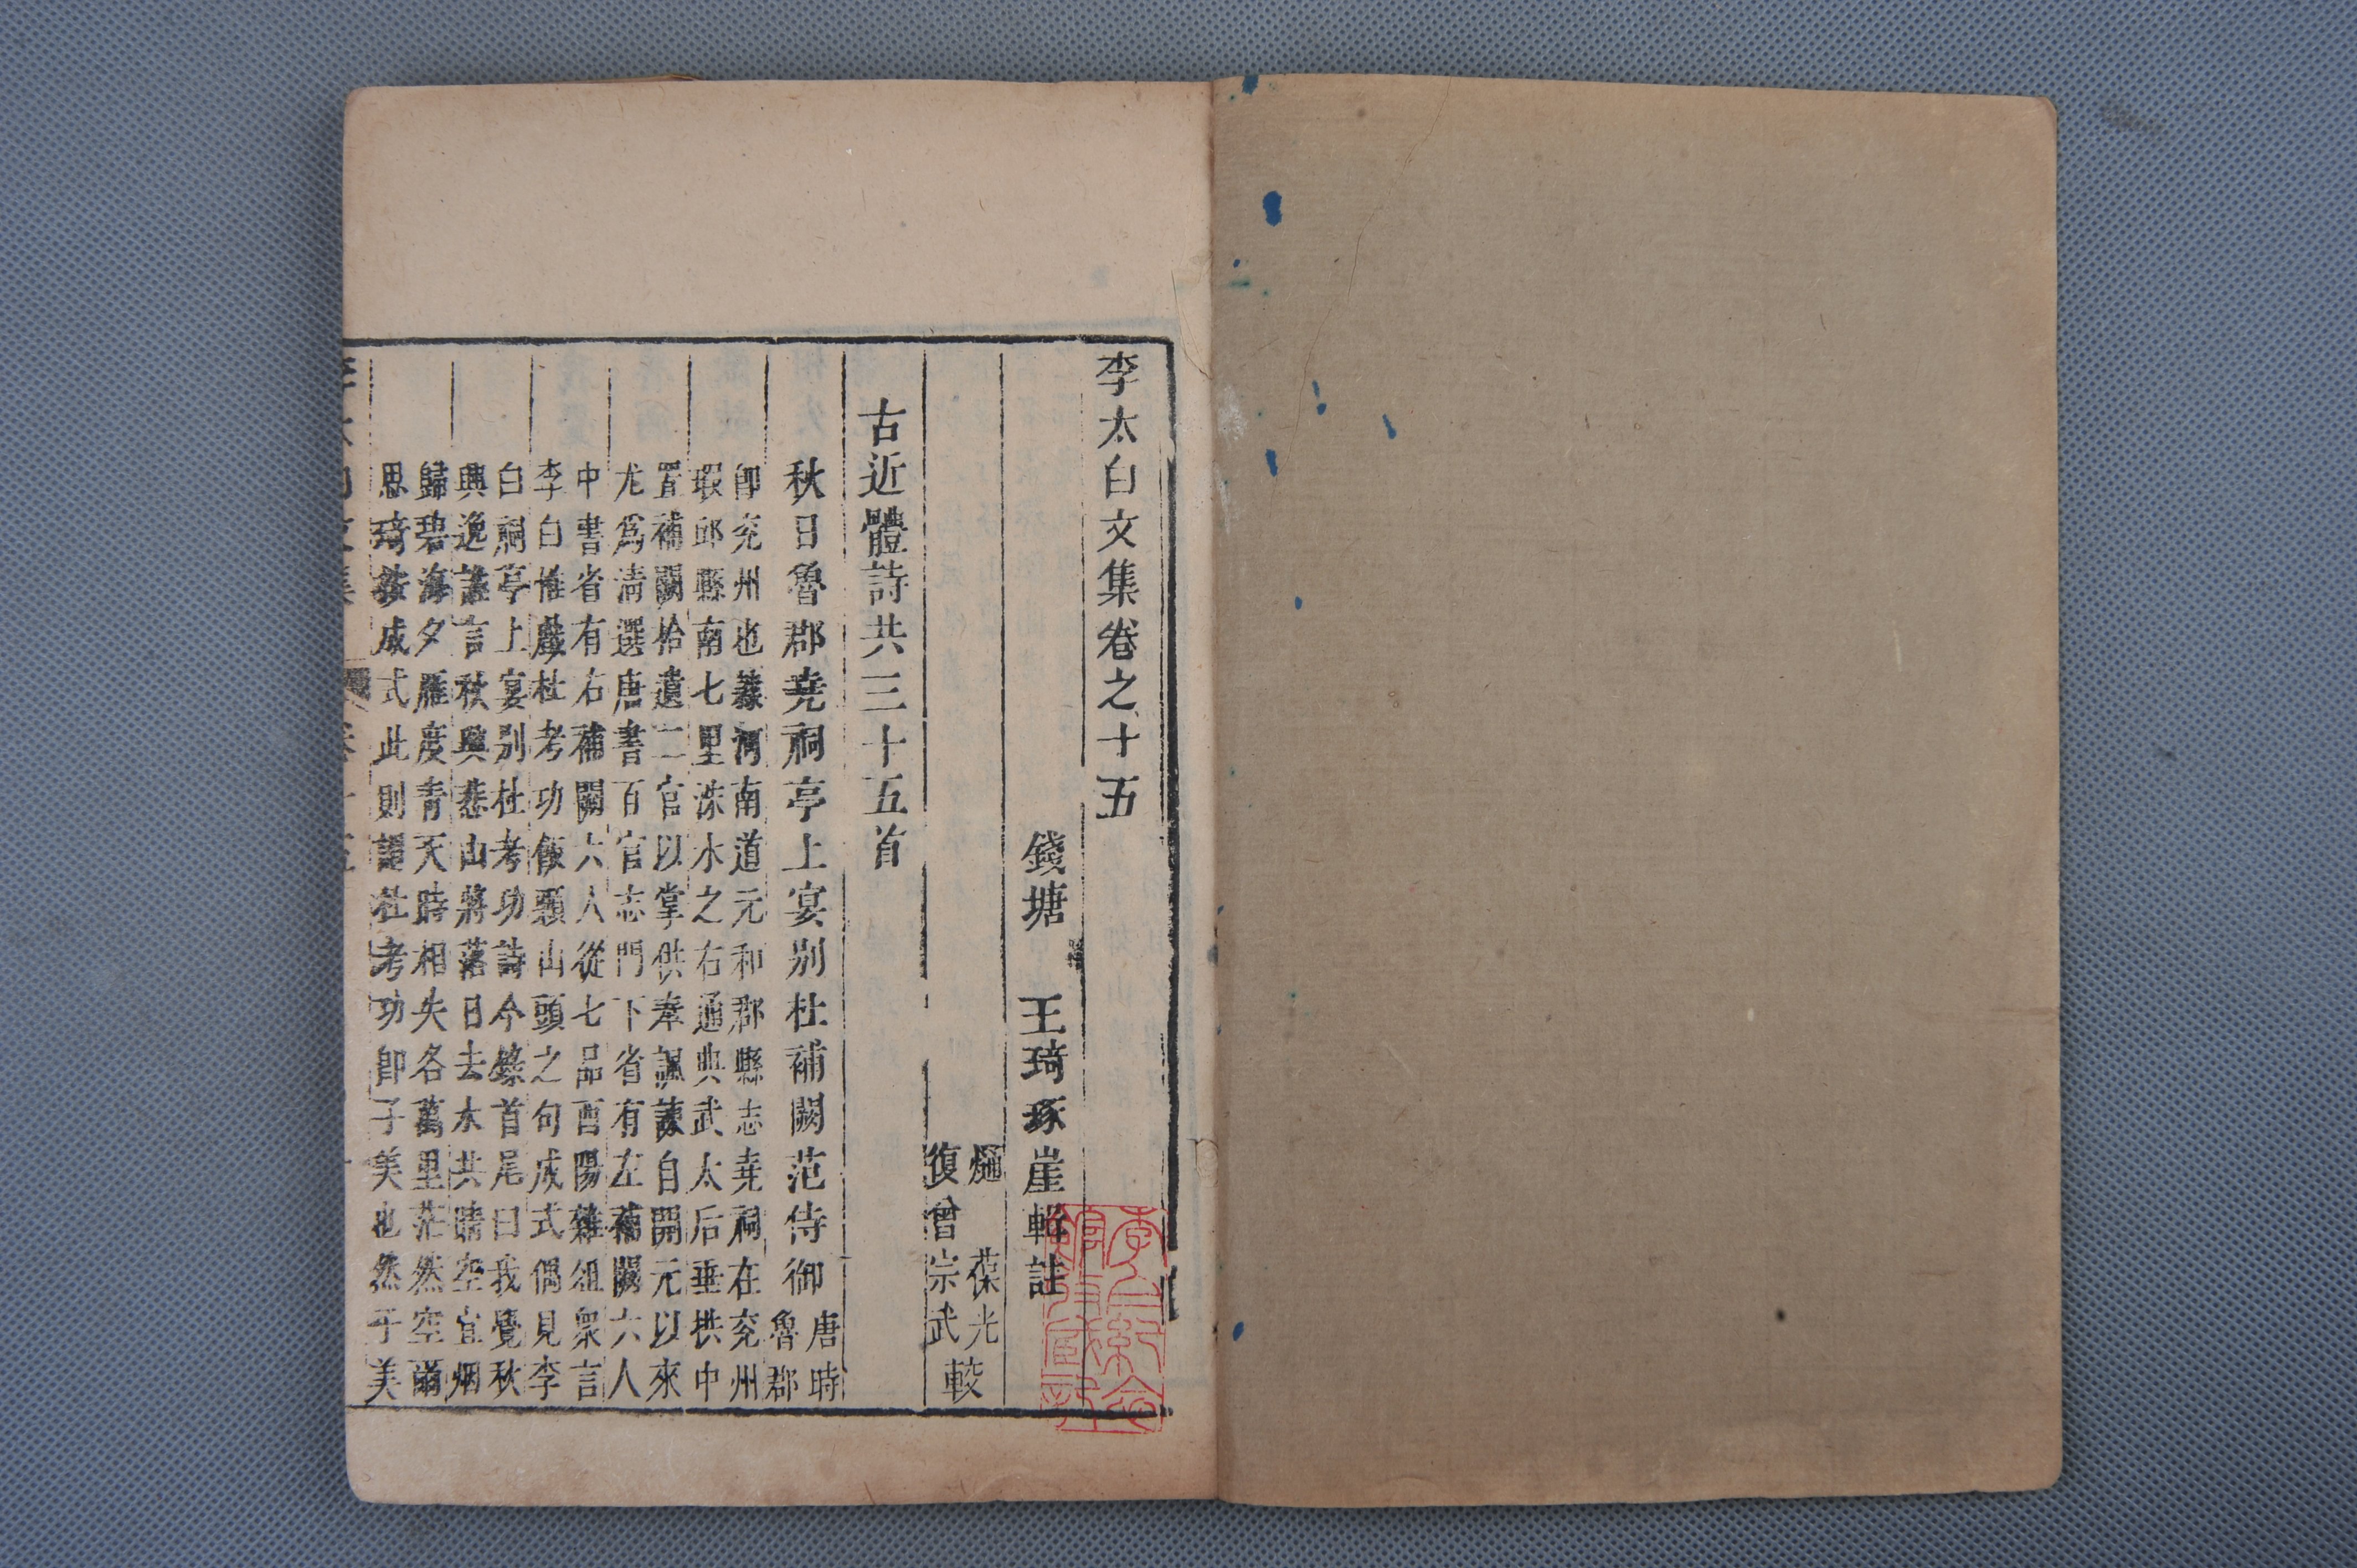 李太白文集卷之十五
錢塘 王琦琢崖輯註
葆光
復曾宗武 較
古近體詩共三十五首
秋日魯郡堯祠亭上宴别杜補闕范侍御 唐時
魯郡
卽兖州也據河南道元和郡縣志堯祠在兖州
瑕邱縣南七里洙水之右通典武太后垂拱中
置補闕拾遺二官以掌供奉諷諫自開元以來
尤爲清選唐書百官志門下省有左補闕六人
中書省有右補闕六人從七品酉陽雜俎衆言
李白惟戲杜考功飯顆山頭之句成式偶見李
白祠亭上宴别杜考功詩今錄首尾曰我覺秋
興逸誰言秋興悲山將落日去水共晴空宜烟
歸碧海夕雁度青天時相失各萬里茫然空爾
思琦按成式此則謂杜考功卽子美也然子美